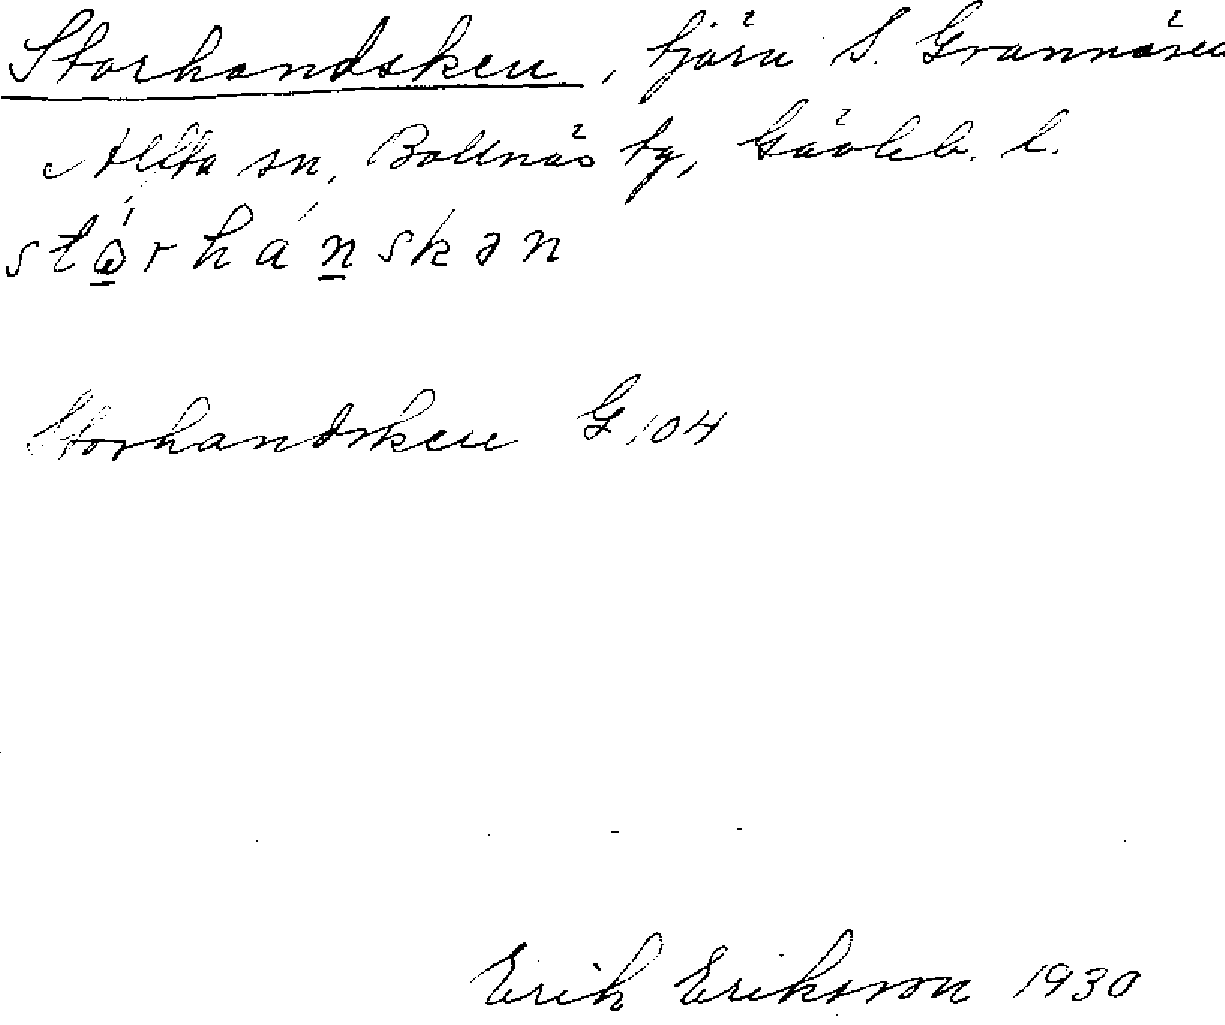 Storhandsken, tjärn S. Grannäsen
Alfta sn, Bollnäs tg, Gävleb. l.
stårhánskən
Storhandsken G 104
Erik Eriksson 1930